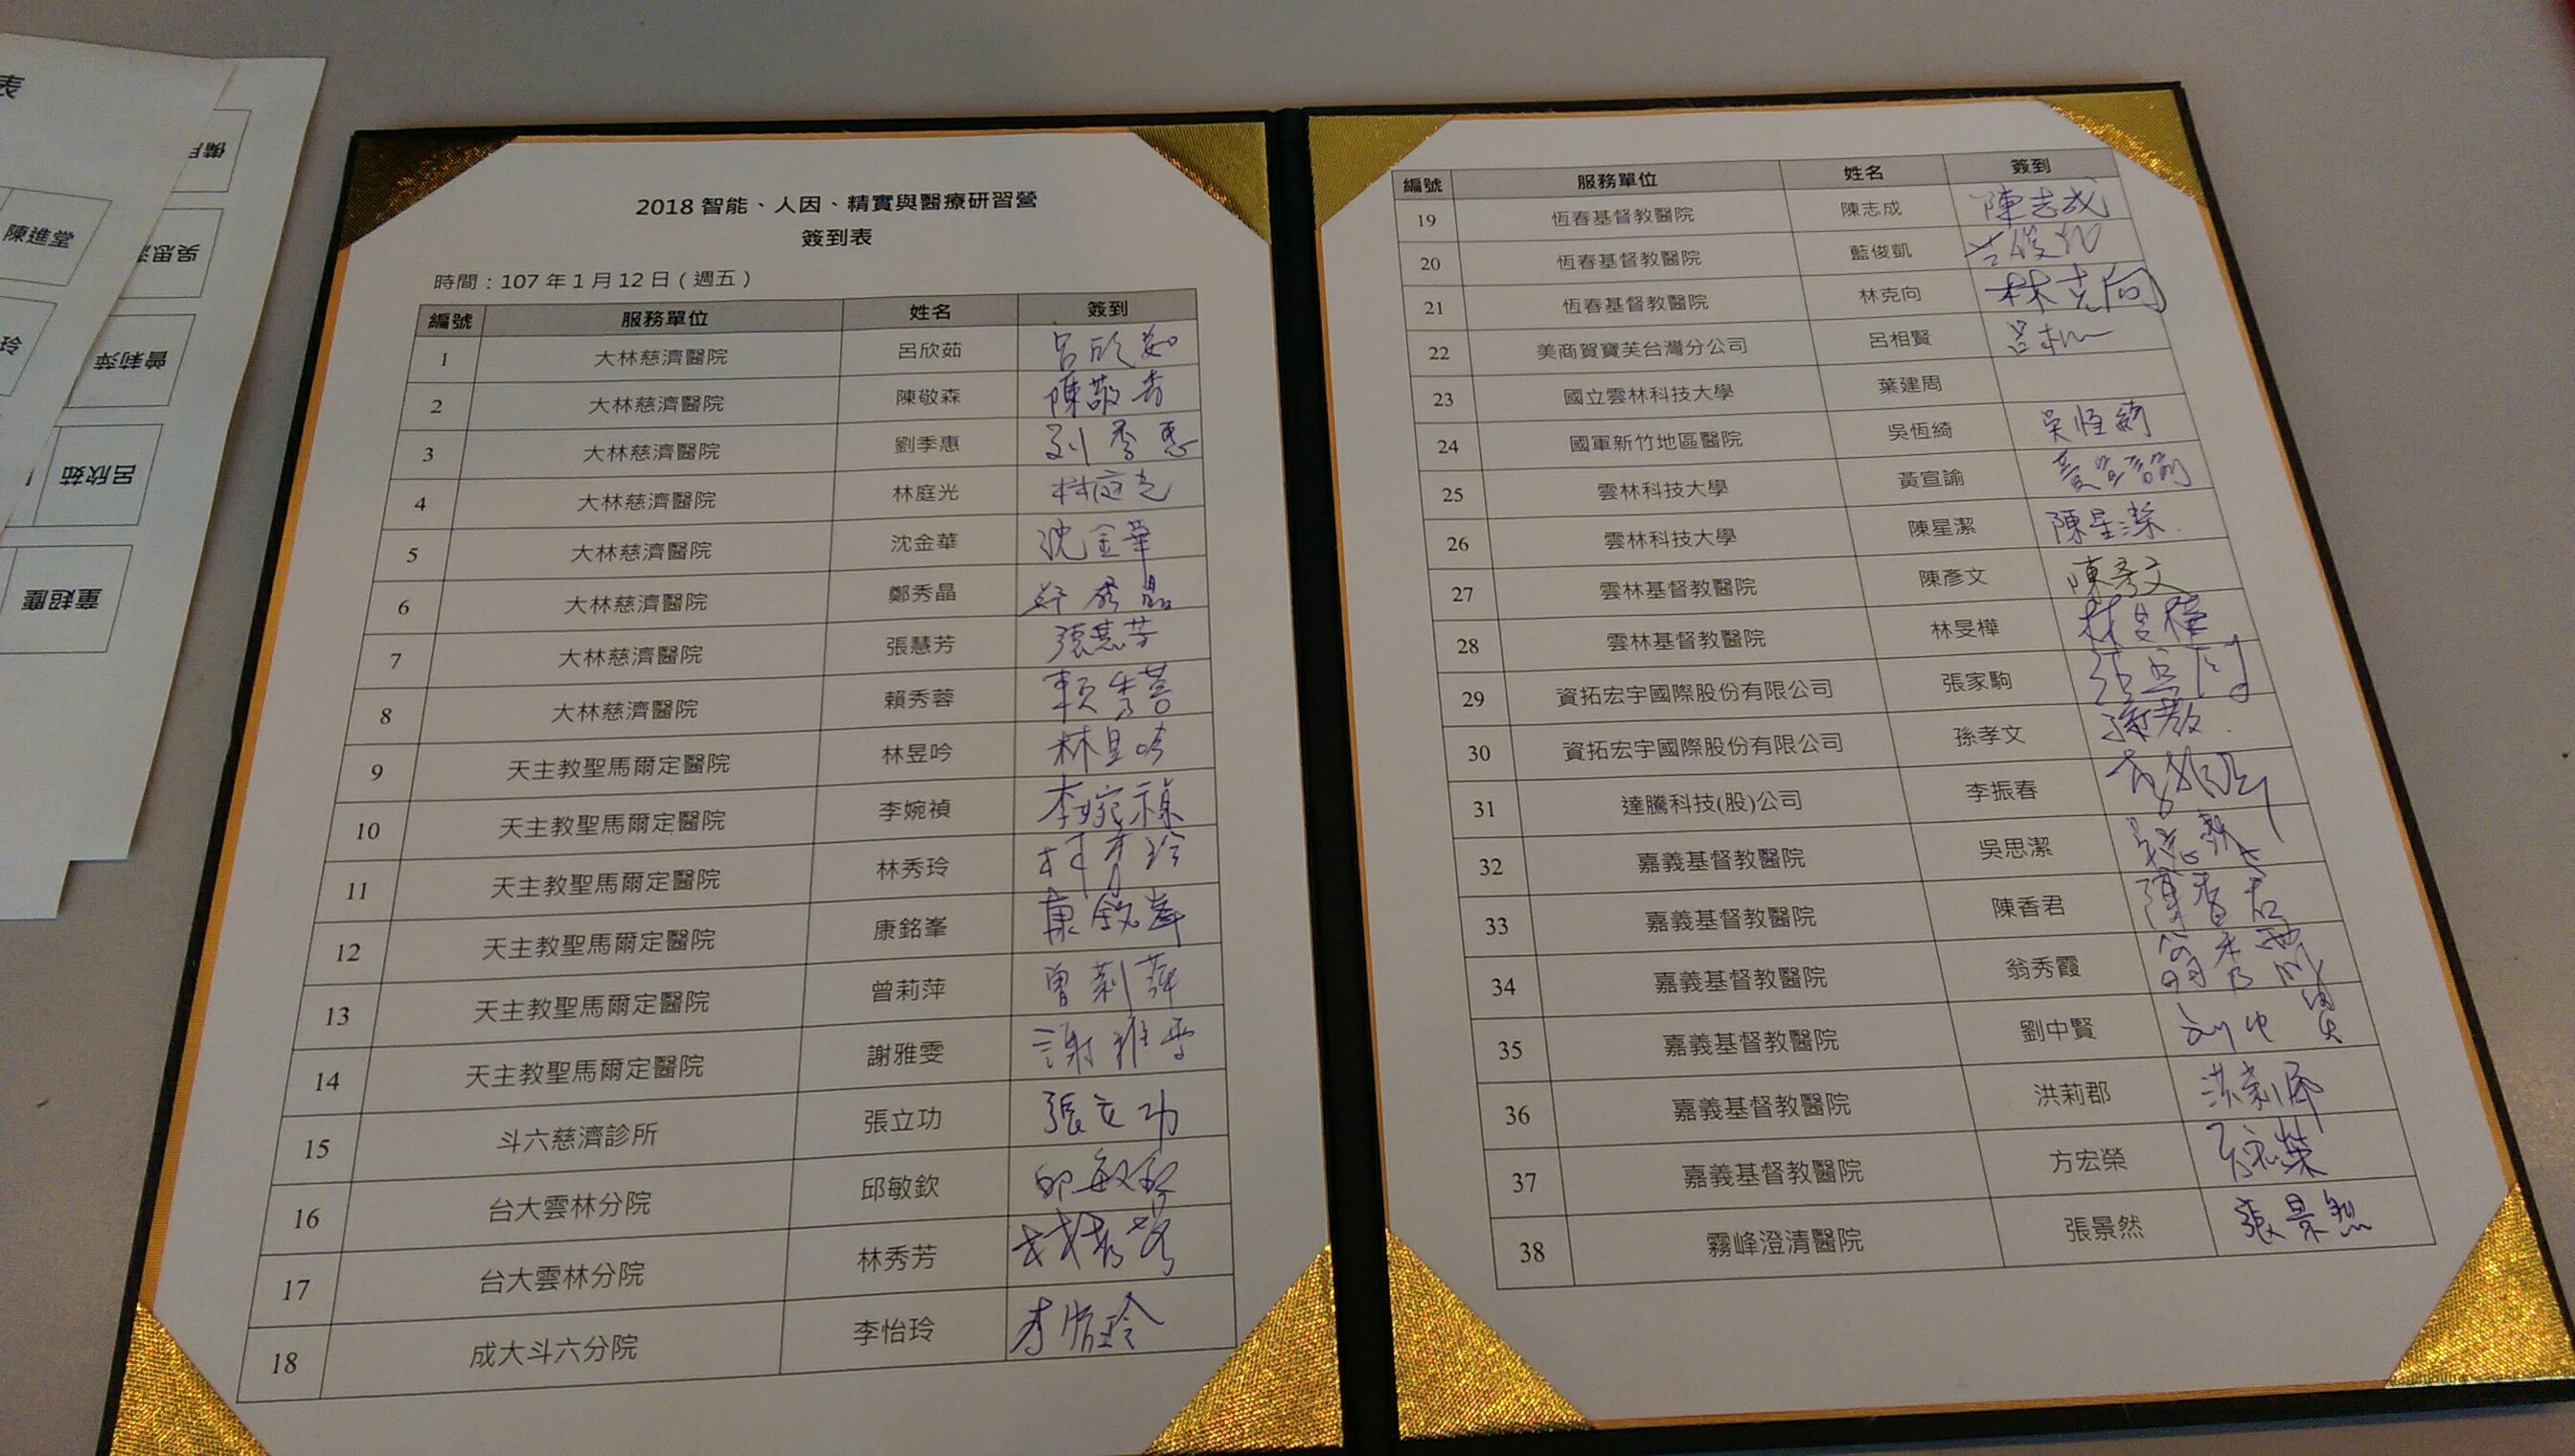 表
陳進堂
玲
備
吳思
曾莉萍
呂欣茹
童超塵
2018 智能、人因、精實與醫療研習營
簽到表
時間：107 年 1 月 12 日 ( 週五 )
編號 服務單位 姓名 簽到
1 大林慈濟醫院 呂欣茹 呂欣茹
2 大林慈濟醫院 陳敬森 陳敬森
3 大林慈濟醫院 劉季惠 刘季惠
4 大林慈濟醫院 林庭光 林庭光
5 大林慈濟醫院 沈金華 沈金華
6 大林慈濟醫院 鄭秀晶 秀晶
7 大林慈濟醫院 張慧芳 張慧芳
8 大林慈濟醫院 賴秀蓉 賴秀蓉
9 天主教聖馬爾定醫院 林昱吟 林昱吟
10 天主教聖馬爾定醫院 李婉禎 李婉禎
11 天主教聖馬爾定醫院 林秀玲 林秀玲
12 天主教聖馬爾定醫院 康銘峯 康銘峯
13 天主教聖馬爾定醫院 曾莉萍 曾莉萍
14 天主教聖馬爾定醫院 謝雅雯 謝雅雯
15 斗六慈濟診所 張立功 張立功
16 台大雲林分院 邱敏欽 邱敏欽
17 台大雲林分院 林秀芳 林秀芳
18 成大斗六分院 李怡玲 李怡玲
編號 服務單位 姓名 簽到
19 恆春基督教醫院 陳志成 陳志成
20 恆春基督教醫院 藍俊凱
21 恆春基督教醫院 林克向 林克向
22 美商賀寶芙台灣分公司 呂相賢 呂相
23 國立雲林科技大學 葉建周
24 國軍新竹地區醫院 吳恆綺 吳恆綺
25 雲林科技大學 黃宣諭 黃宣諭
26 雲林科技大學 陳星潔 陳星潔
27 雲林基督教醫院 陳彥文 陳彥文
28 雲林基督教醫院 林旻樺 林旻樺
29 資拓宏宇國際股份有限公司 張家駒
30 資拓宏宇國際股份有限公司 孫孝文
31 達騰科技(股)公司 李振春
32 嘉義基督教醫院 吳思潔
33 嘉義基督教醫院 陳香君 陳香君
34 嘉義基督教醫院 翁秀霞 翁秀霞
35 嘉義基督教醫院 劉中賢 刘中賢
36 嘉義基督教醫院 洪莉郡 洪莉郡
37 嘉義基督教醫院 方宏榮 方宏榮
38 霧峰澄清醫院 張景然 張景然